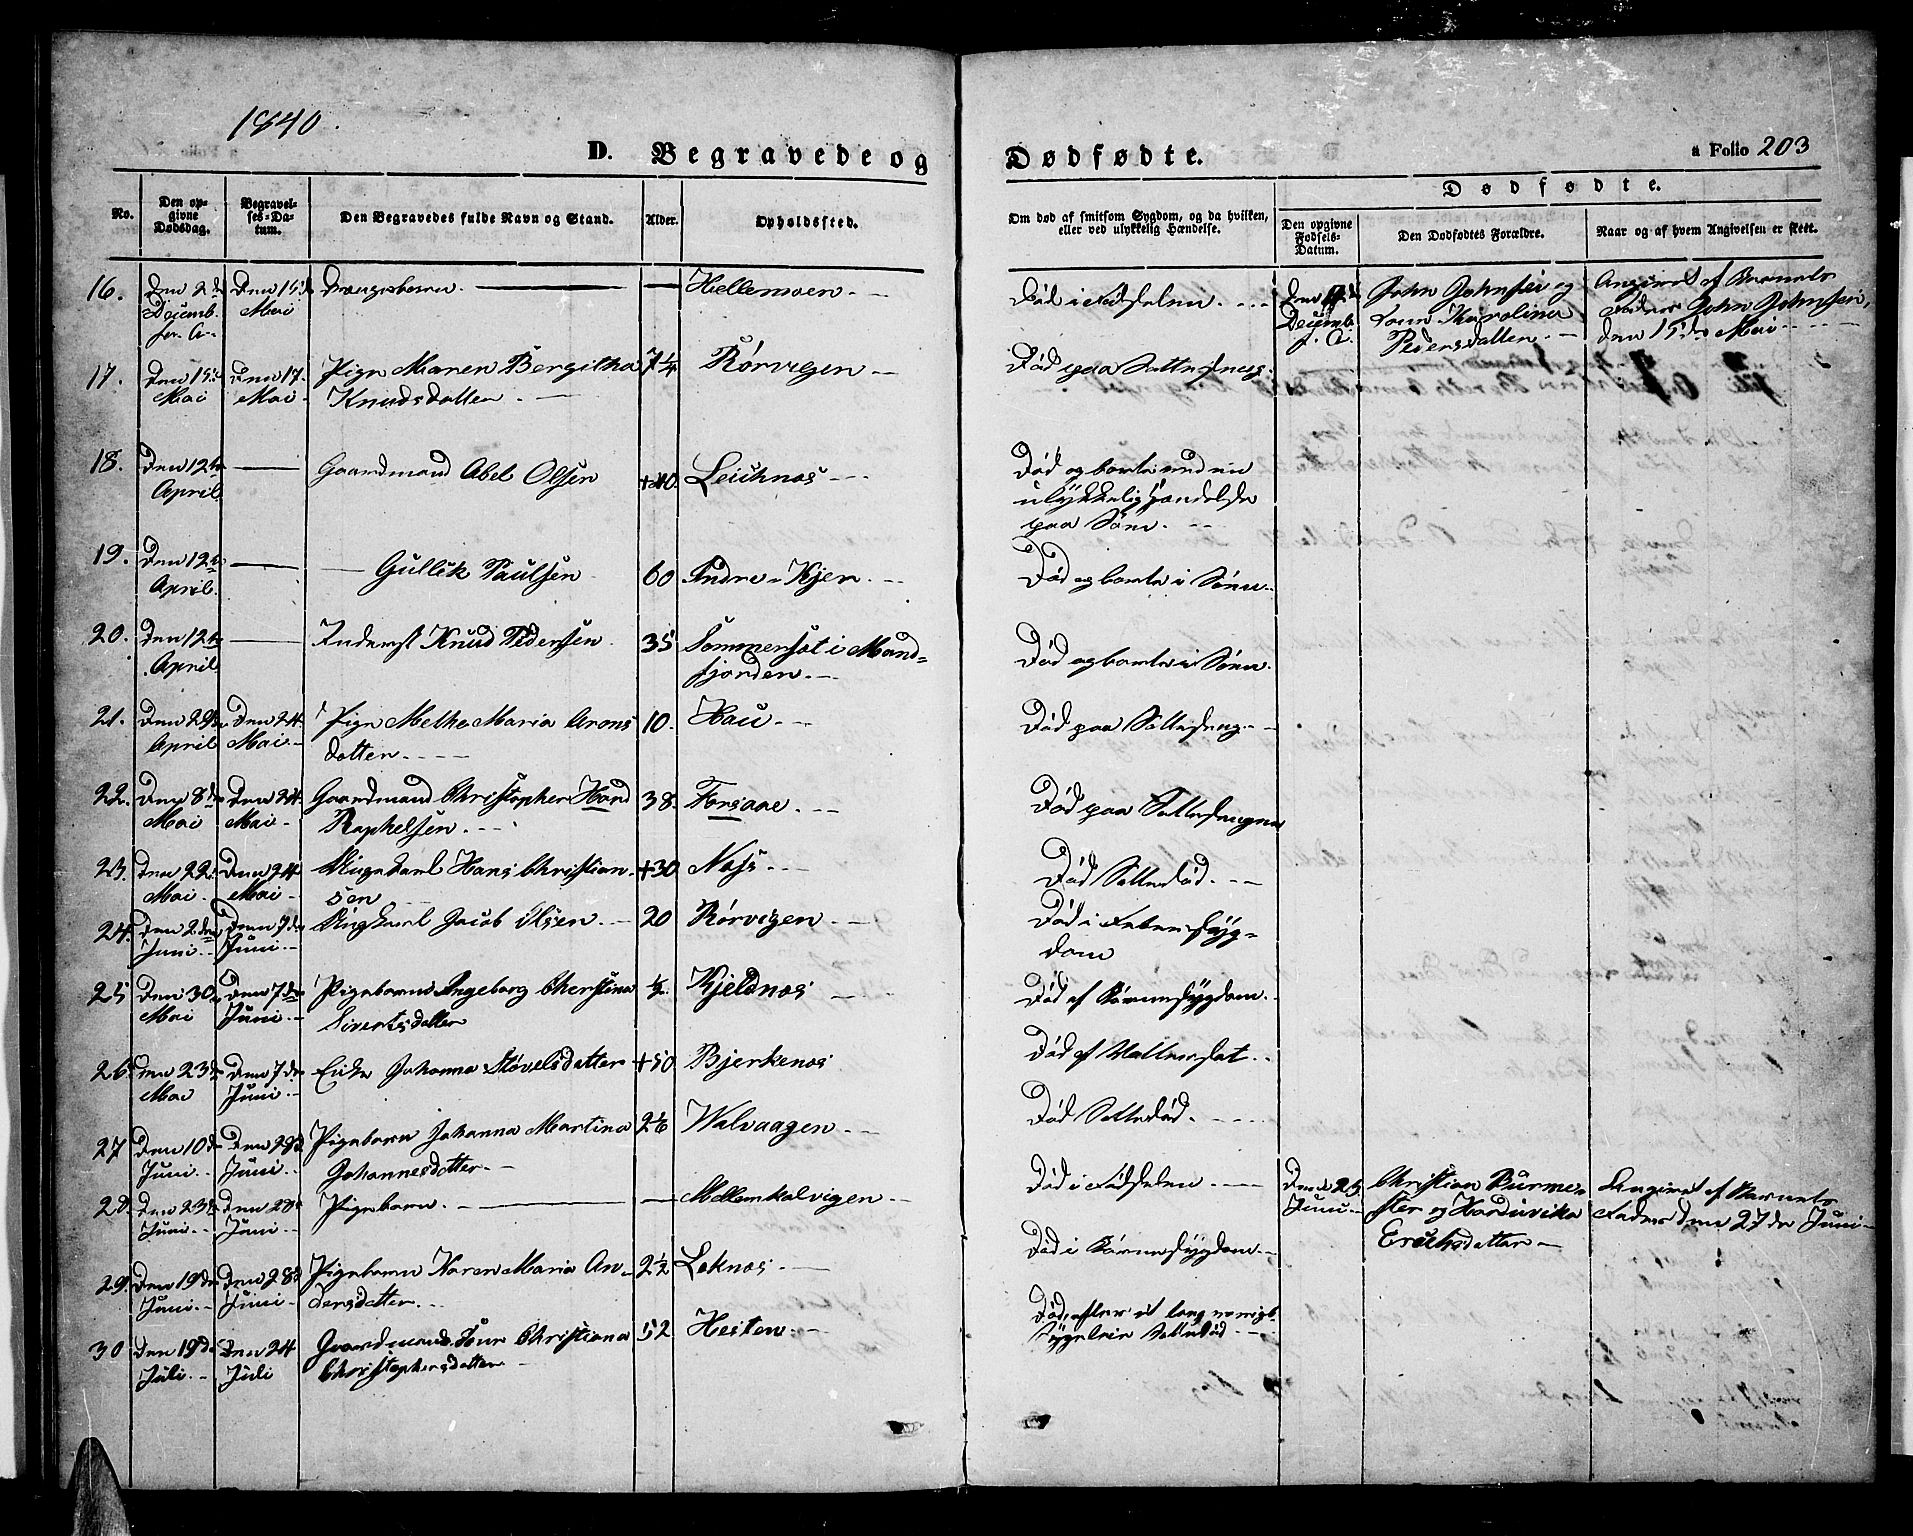 1840.
D. Begravede og Dødfødte.
a Folio 203
Dødfødte.
No.
Den opgivne Dødsdag.
Begravelses-Datum.
Den Begravedes fulde Navn og Stand.
Alder.
Opholdssted.
Om død af smitsom Sygdom, og da hvilken, eller ved ulykkelig Hændelse.
Den opgivne Fødsels-Datum.
Den Dødfødtes Forældre.
Naar og af hvem Angivelsen er skeet.
16. Den 2de Decemb. f. A. Den 15de Mai Drængebarn. — — Hellemoen. Død i Fødselen. Den 2de Decemb. f. A. John Johnsen og Kone Karolina Pedersdatter. Angivet af Barnets Fader John Johnsen, den 15de Mai
17. Den 15de Mai Den 17. Mai Pige Maren Bergitha Knudsdatter 7¼ Rørvigen Død paa Sottesæng.
18. Den 12te April — Gaardmand Abel Olsen +40. Leiknes Død og borte ved en ulykkelig Hændelse paa Søen.
19. Den 12te April. — — Gullik Paulsen 60 Indre-Kjer. Død og borte i Søen.
20. Den 12te April — Inderst Knud Pedersen. 35 Sommersæt i Mandfjorden. Død og borte i Søen.
21. Den 29de April Den 24. Mai Pige Methe Maria Aronsdatter. 10. Hau. Død paa Sottesæng.
22. Den 8de Mai Den 24. Mai Gaardmand Christopher Hord Raphelsen. 38. Forsaae. Død paa Sottesengen
23. Den 22. Mai. Den 24. Mai Ungekarl Hans Christiansen +30 Næss. Død Sottedød.
24. Den 2den Juni. Den 7de Juni. Ungkarl Jacob Olsen. 20 Rørvigen Død i Febersygdom
25 Den 30. Mai Den 7de Juni. Pigebarn Ingeborg Cherstina Sivertsdatter ½ Kjeldnes Død af Børnesygdom.
26. Den 23de Mai Den 7de Juni. Enke Johanna Støvelsdatter +50 Bjerkenes Død af Vattersot.
27 Den 10de Juni Den 28de Juni. Pigebarn Johanna Martina Johannesdatter. 2⅙ Valvaagen Død Sottedød.
28. Den 23de Juni. Den 28de Juni. Pigebarn. — — Mellemkalvigen Død i Fødselen. Den 23. Juni Christian Burmester og Hardevika Erichsdatter Angivet af Barnets Fader den 27de Juni
29. Den 19de Juni. Den 28de Juni Pigebarn Karen Maria Andersdatter. 2½ Leknes. Død i Børnesygdom.
30 Den 19de Juli. Den 24 Juli Gaardmands Kone Christiana Christophersdatter 52. Hesten. Død, efter et langvarigt Sygeleie Sottedød